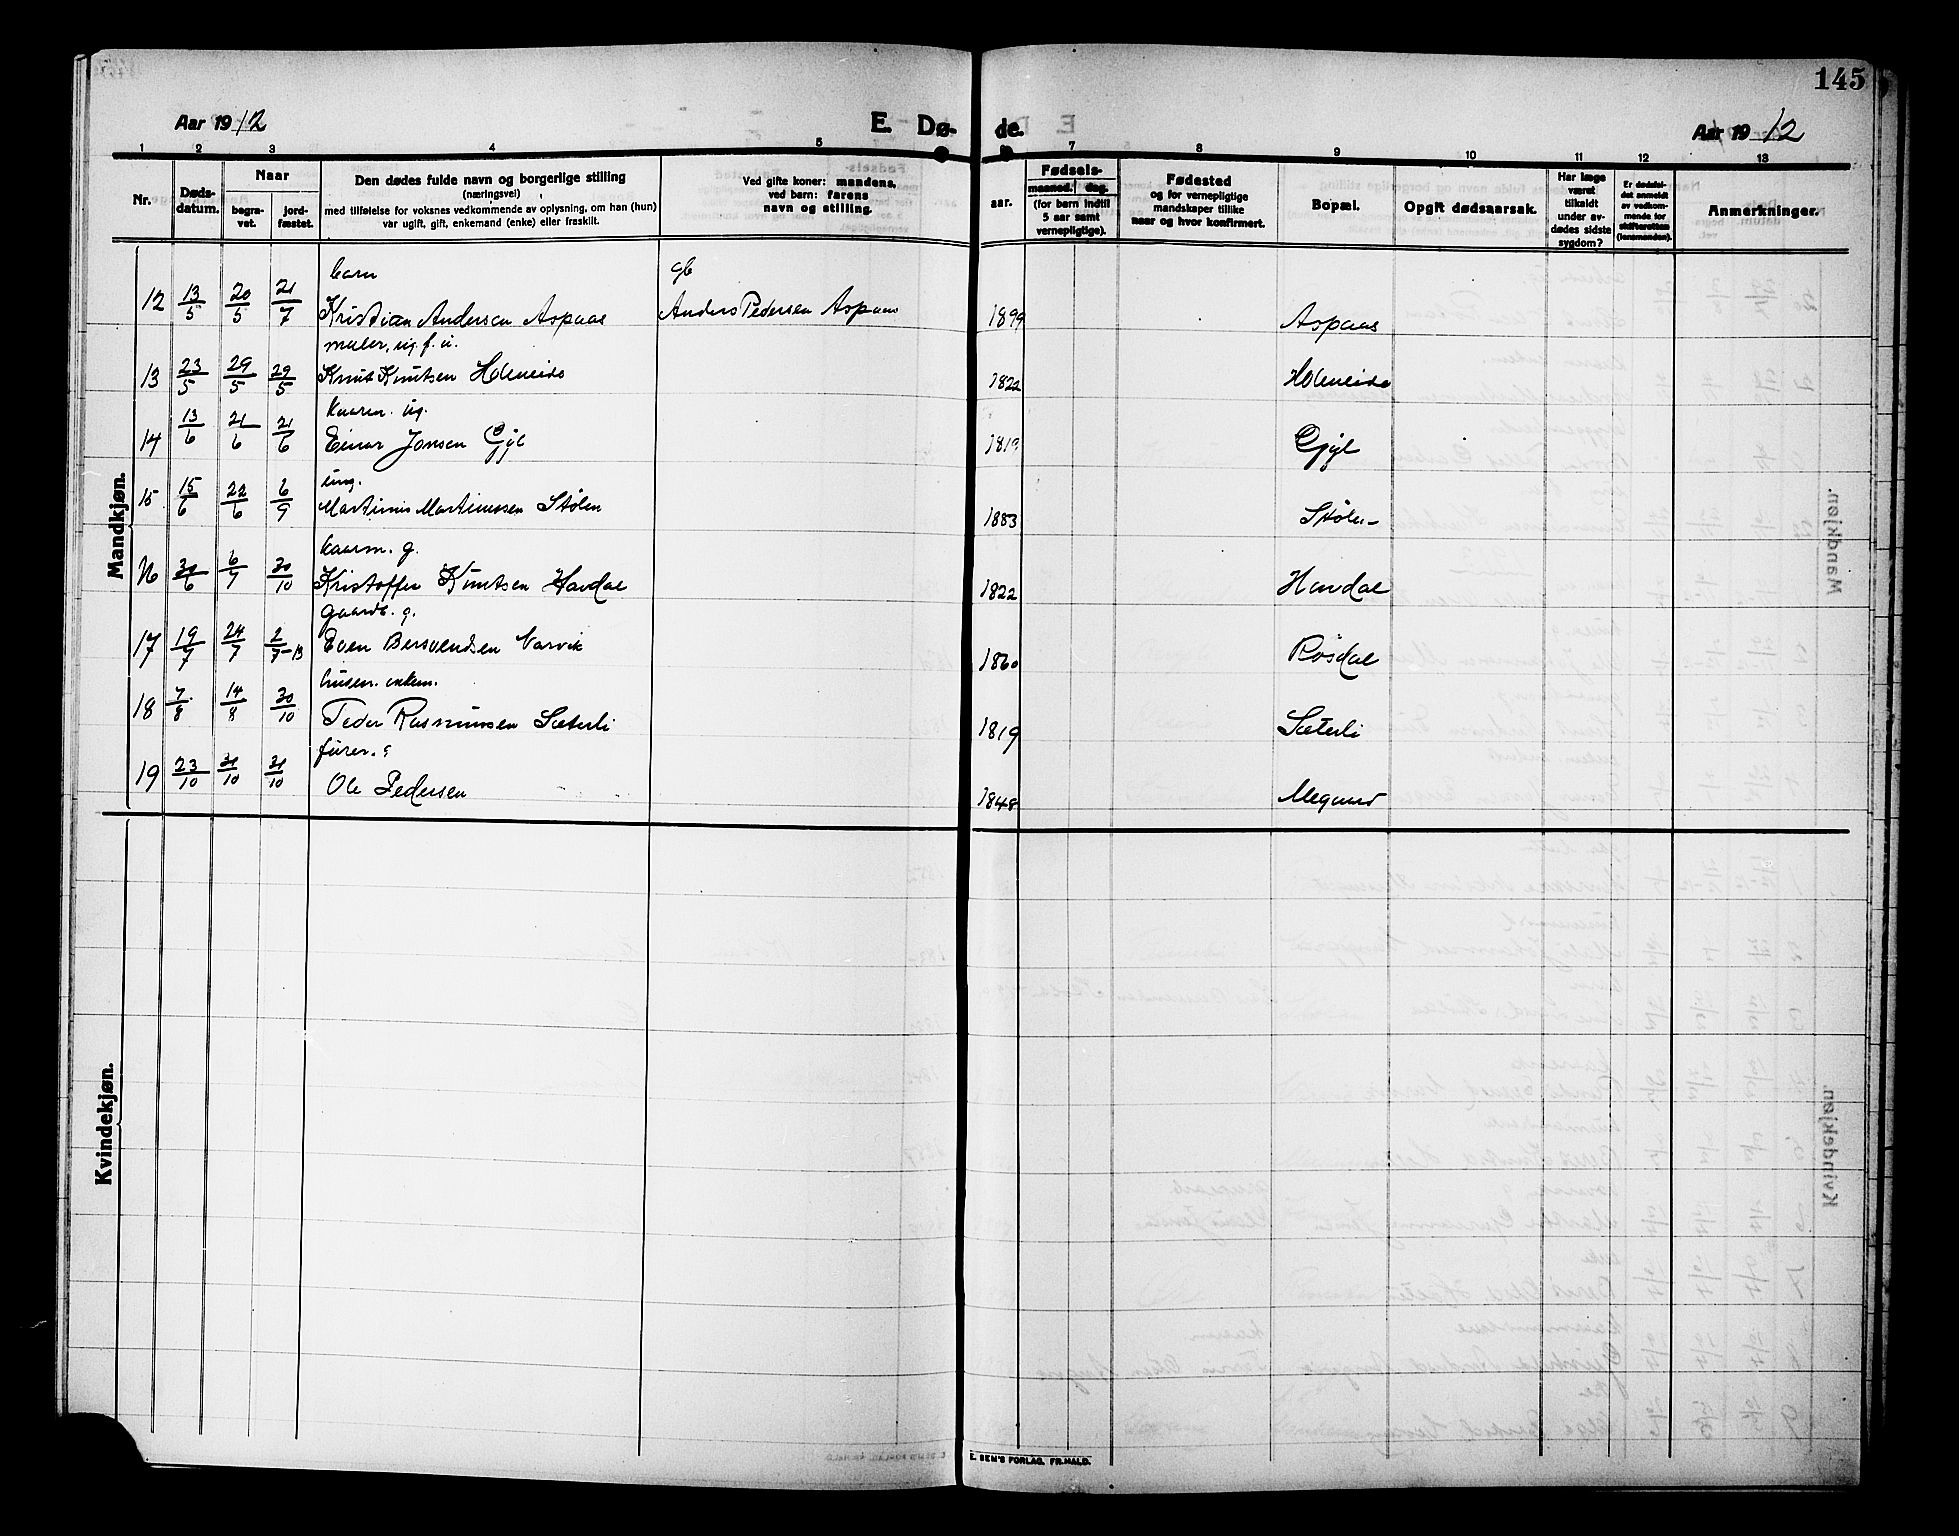 145
Aar 1912
E. Dø- de.
Aar 1912
1 2 3 4 5 7 8 9 10 11 12 13
Nr.
Døds-datum.
Naar
begra-vet.
jord-fæstet.
Den dødes fulde navn og borgerlige stilling
(næringsvei)
med tilføielse for voksnes vedkommende av oplysning, om han (hun)
var ugift, gift, enkemand (enke) eller fraskilt.
Ved gifte koner: mandens,
ved børn: farens
navn og stilling.
Fødsels-
aar.
maaned. dag.
(for børn indtil
5 aar samt
vernepligtige).
Fødested
og for vernepligtige
mandskaper tillike
naar og hvor konfirmert.
Bopæl.
Opgit dødsaarsak.
Har læge
været
tilkaldt
under av-
dødes sidste
sygdom?
Er dødsfal-
det anmeldt
av vedkom-
mende for
skifteretten
(lensmanden).
Anmerkninger.
Mandkjøn.
barn gb
12 13/5 20/5 21/7 Kristian Andersen Aspaas Anders Pedersen Aspaas 1899 Aspaas
maler, ug. f. u.
13 23/5 29/5 29/5 Knut Knutsen Holeneide 1822 Holeneide
kaarm. ug.
14 13/6 21/6 21/6 Einar Jonsen Gjyl 1819 Gjyl
ung.
15 15/6 22/6 6/9 Martinus Martinussen Stølen 1883 Stølen
kaarm. g.
16 30/6 6/7 30/10 Kristoffer Knutsen Havdal 1822 Havdal
gaardb. g.
17 19/7 24/7 2/7-13 Even Bersvendsen Varvik 1860 Røsdal
husm. enkem.
18 7/8 14/8 30/10 Peder Rasmussen Sæterli 1819 Sæterli
furer. g
19 23/10 31/10 31/10 Ole Pedersen 1848 Megaard
Kvindekjøn.
E. SEM'S FORLAG. FR.HALD.